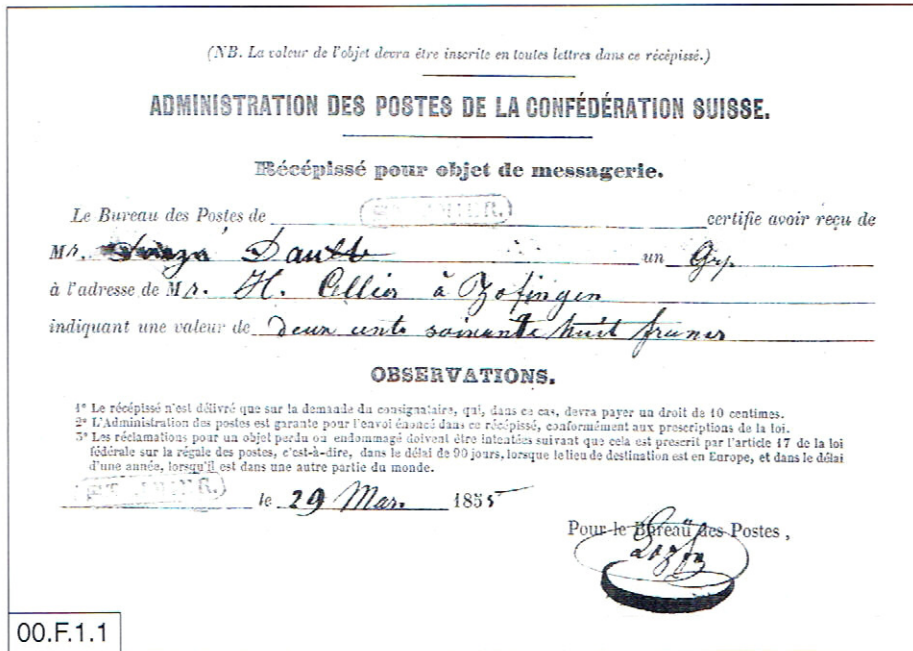 (NB. La valeur de l'objet devra être inscrite en toutes lettres dans ce récépissé.)
ADMINISTRATION DES POSTES DE LA CONFÉDÉRATION SUISSE.
Récépissé pour objet de messagerie.
Le Bureau des Postes de certifie avoir reçu de
Mr. Dault un Grp.
à l'adresse de Mr. H. à Zofingen
indiquant une valeur de deux cents soixante huit francs
OBSERVATIONS.
1° Le récépissé n'est délivré que sur la demande du consignataire, qui, dans ce cas, devra payer un droit de 10 centimes.
2° L'Administration des postes est garante pour l'envoi énoncé dans ce récépissé, conformément aux prescriptions de la loi.
3° Les réclamations pour un objet perdu ou endommagé doivent être intentées suivant que cela est prescrit par l'article 17 de la loi
fédérale sur la régale des postes, c'est-à-dire, dans le délai de 90 jours, lorsque le lieu de destination est en Europe, et dans le délai
d'une année, lorsqu'il est dans une autre partie du monde.
le 29 Mar. 1855
Pour le Bureau des Postes,
00.F.1.1